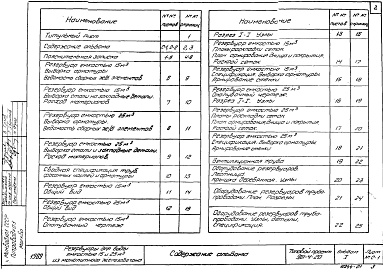 2
Наименование
№№ листов
№№ страниц
Титульный лист
1
Содержание альбома
2,3
Пояснительная записка
1-5
4-8
Резервуар емкостью 15 м³
Выборка арматуры
Ведомость сборных ж/б элементов
6
9
Резервуар емкостью 15 м³
Выборка стали на закладные детали
Расход материалов
10
Резервуар емкостью 25 м³
Выборка арматуры
Ведомость сборных ж/б элементов
11
Резервуар емкостью 25 м³
Выборка стали и закладные детали
Расход материалов
12
Сводная спецификация труб,
фасонных частей и арматуры
10
13
Резервуар емкостью 15 м³
Общий вид
11
14
Резервуар емкостью 25 м³
Общий вид
12
15
Резервуар емкостью 15 м³
Опалубочный чертеж
Наименование
№№ листов
№№ страниц
Разрез I-I. Узлы
Резервуар емкостью 15 м³
План раскладки сеток
План армирования днища и покрытия.
Раскрой сеток
14
17
Резервуар емкостью 15 м³
Спецификация. Выборка арматуры
Армирование стены
Резервуар емкостью 25 м³
Опалубочный чертеж
Разрез I-I. Узлы
16
19
Резервуар емкостью 25 м³
Планы раскладки сеток
План армирования днища и покрытия.
Раскрой сеток
17
20
Резервуар емкостью 25 м³
Спецификация. Выборка арматуры
Армирование стены
18
21
Вентиляционная труба
19
22
Оборудование резервуаров
Лестница
Камера дренажная. Узлы
20
23
Оборудование резервуаров трубо-
проводами. План. Разрезы
21
24
Оборудование резервуаров трубо-
проводами. Узлы, детали,
спецификация
22
25
1968
Резервуары для воды
емкостью 15 и 25 м³
из монолитного железобетона
Содержание альбома
Типовой проект
Альбом
I
Лист